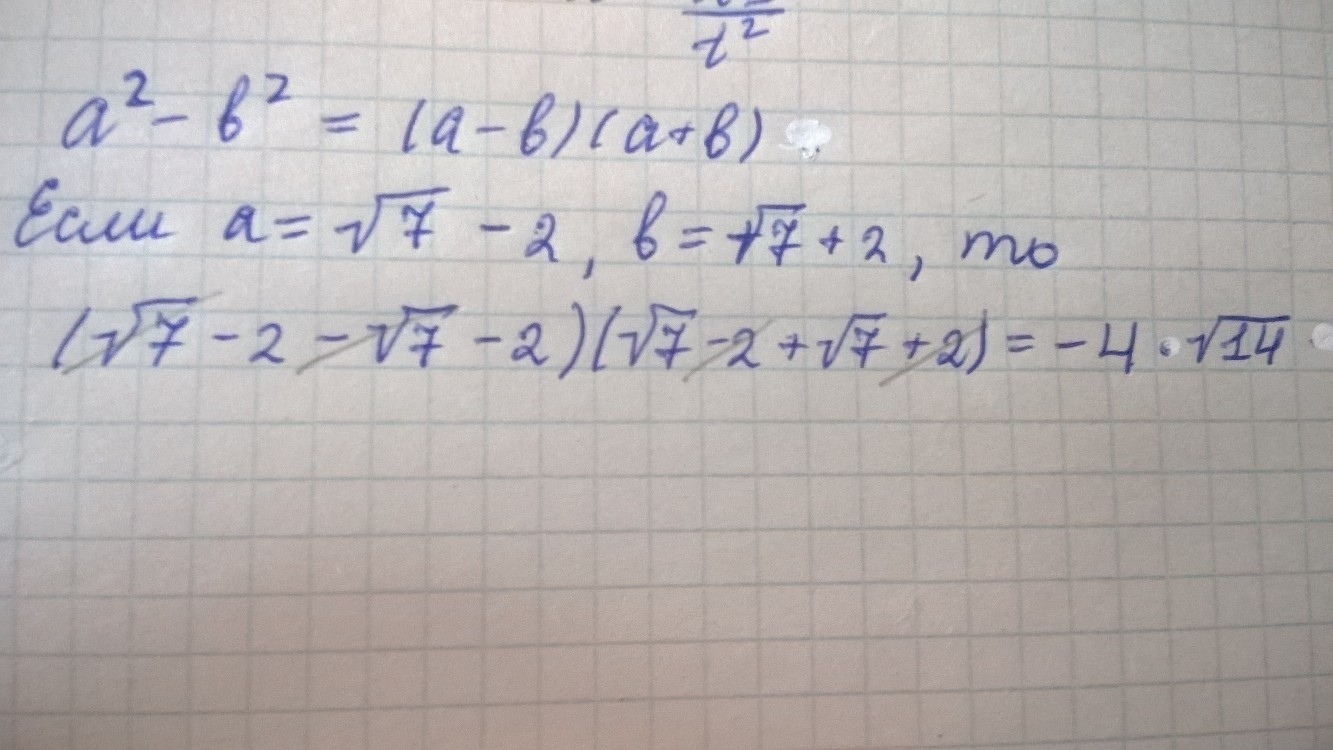 t²
a² - b² = (a - b)(a + b)
Если a = √7 - 2, b = √7 + 2, то
(√7 - 2 - √7 - 2)(√7 - 2 + √7 + 2) = -4 · √14